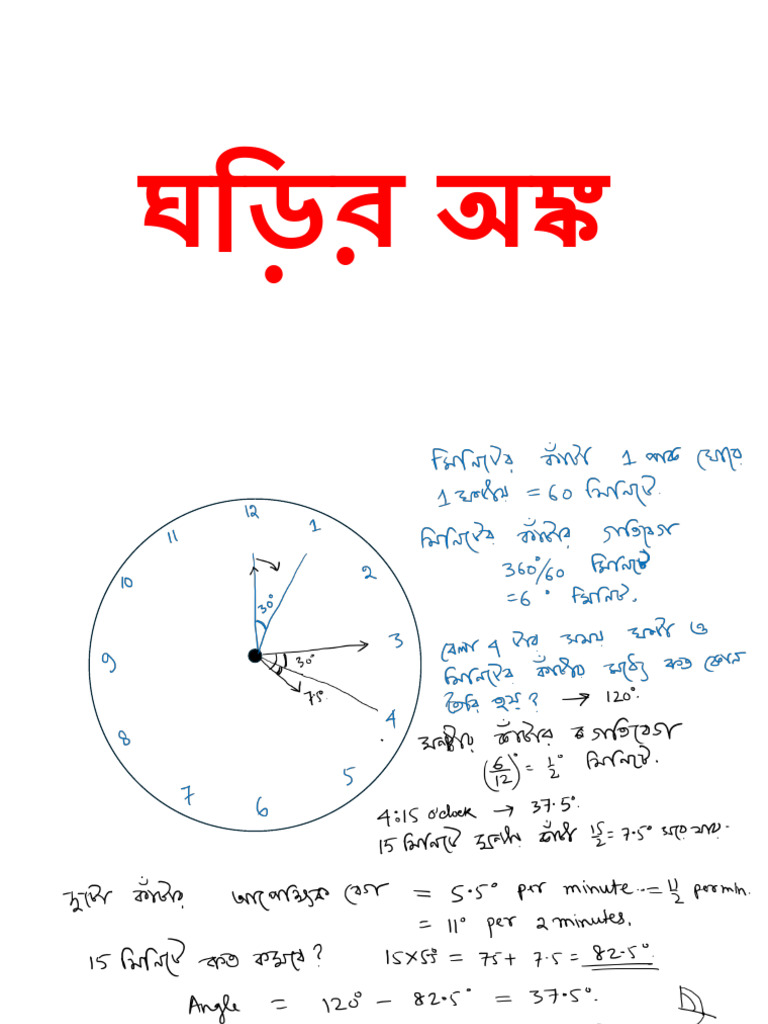 ঘড়ির অঙ্ক
মিনিটের কাঁটা 1 পাক ঘোরে
1 ঘণ্টায় = 60 মিনিটে.
মিনিটের কাঁটার গতিবেগ
360°/60 মিনিটে
= 6° মিনিটে.
12
1
2
3
4
5
6
7
8
9
10
11
30°
30°
75°
বেলা 4 টার সময় ঘণ্টা ও
মিনিটের কাঁটার মধ্যে কত কোন
তৈরি হয়? → 120°.
ঘণ্টার কাঁটার গতিবেগ
(6/12)° = 1/2° মিনিটে.
4:15 o'clock → 37.5°.
15 মিনিটে ঘণ্টার কাঁটা 15/2 = 7.5° সরে যায়.
দুটো কাঁটার আপেক্ষিক বেগ = 5.5° per minute = 11/2 per min.
= 11° per 2 minutes.
15 মিনিটে কত কমবে? 15×5.5° = 75 + 7.5 = 82.5°.
Angle = 120° - 82.5° = 37.5°.